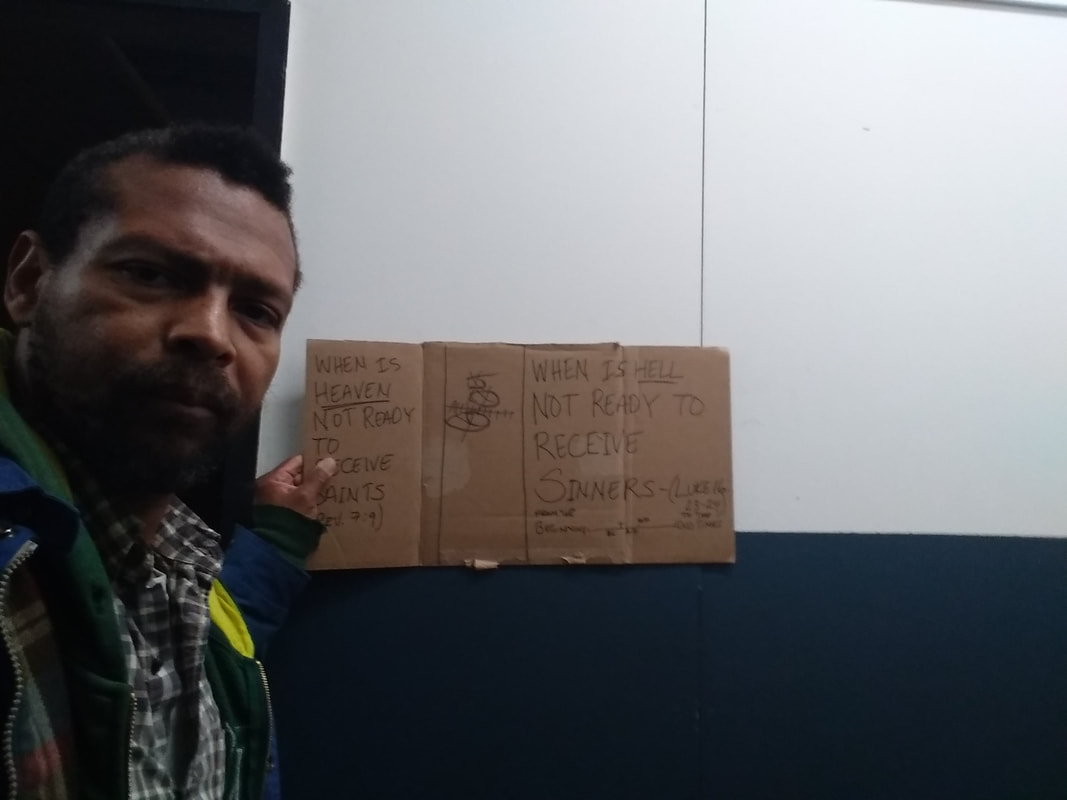 WHEN IS
HEAVEN
NOT READY
TO
RECEIVE
SAINTS
(REV. 7:9)
WHEN IS HELL
NOT READY TO
RECEIVE
SINNERS-(LUKE 16: